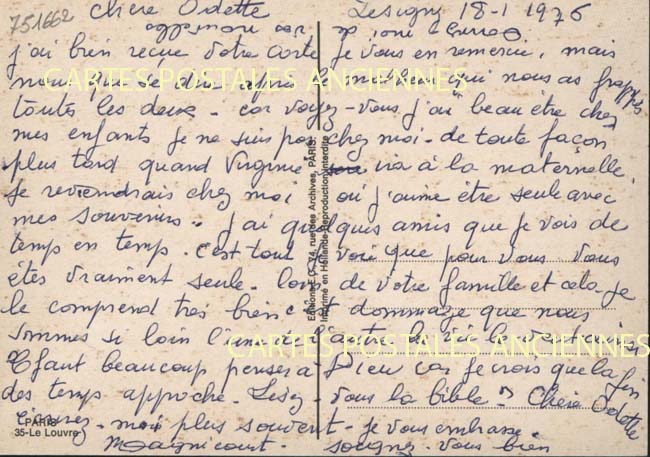 751662
Chère Odette Lesigny 18-1 1976
j'ai bien reçue votre carte je vous en remercie, mais
malheur qui nous as frappés
toutes les deux - car voyez-vous, j'ai beau être chez
mes enfants je ne suis pas chez moi - de toute façon
plus tard quand Virginie ira à la maternelle
je reviendrais chez moi où j'aime être seule avec
mes souvenirs. j'ai quelques amis que je vois de
temps en temps. c'est tout que pour vous vous
êtes vraiment seule. loin de votre famille et cela je
le comprend très bien c'est dommage que nous
sommes si loin l'une de l'autre
il faut beaucoup penser à Dieu car je crois que la fin
des temps approche. Lisez-vous la bible. ? Chère Odette
écrivez-moi plus souvent - je vous embrasse.
soignez-vous bien
CARTES POSTALES ANCIENNES
CARTES POSTALES ANCIENNES
Editions E.C. 74, rue des Archives, PARIS.
Imprimé en Hollande Reproduction interdite
PARIS
35-Le Louvre